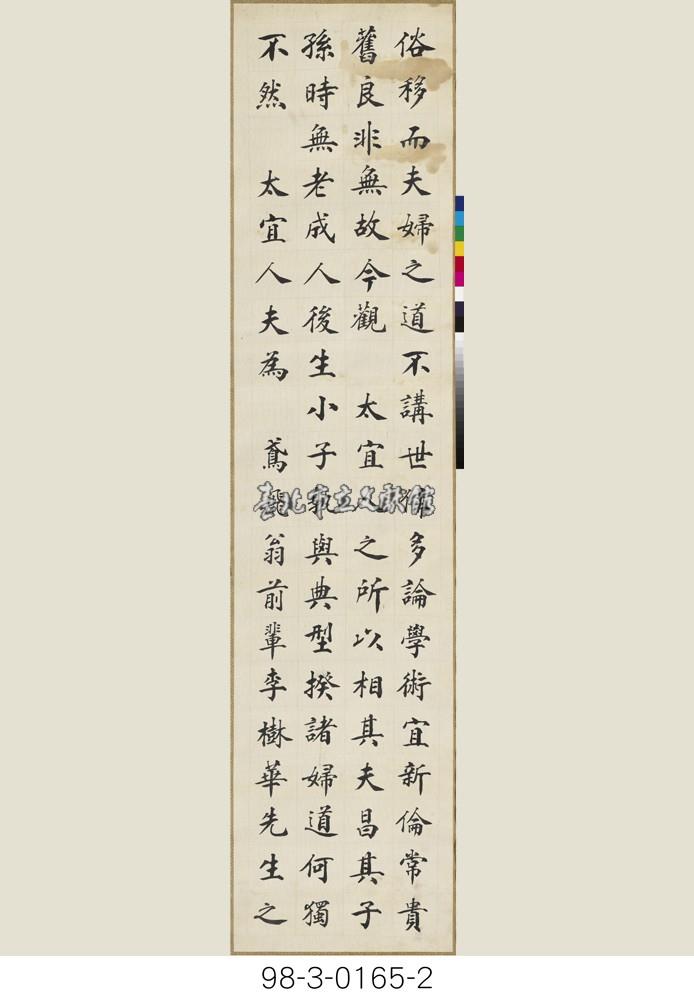 俗移而夫婦之道不講世猶多論學術宜新倫常貴
舊良非無故今觀 太宜人之所以相其夫昌其子
孫時無老成人後生小子孰與典型揆諸婦道何獨
不然 太宜人夫為 鳶翁前輩李樹華先生之
臺北市立文獻館
98-3-0165-2